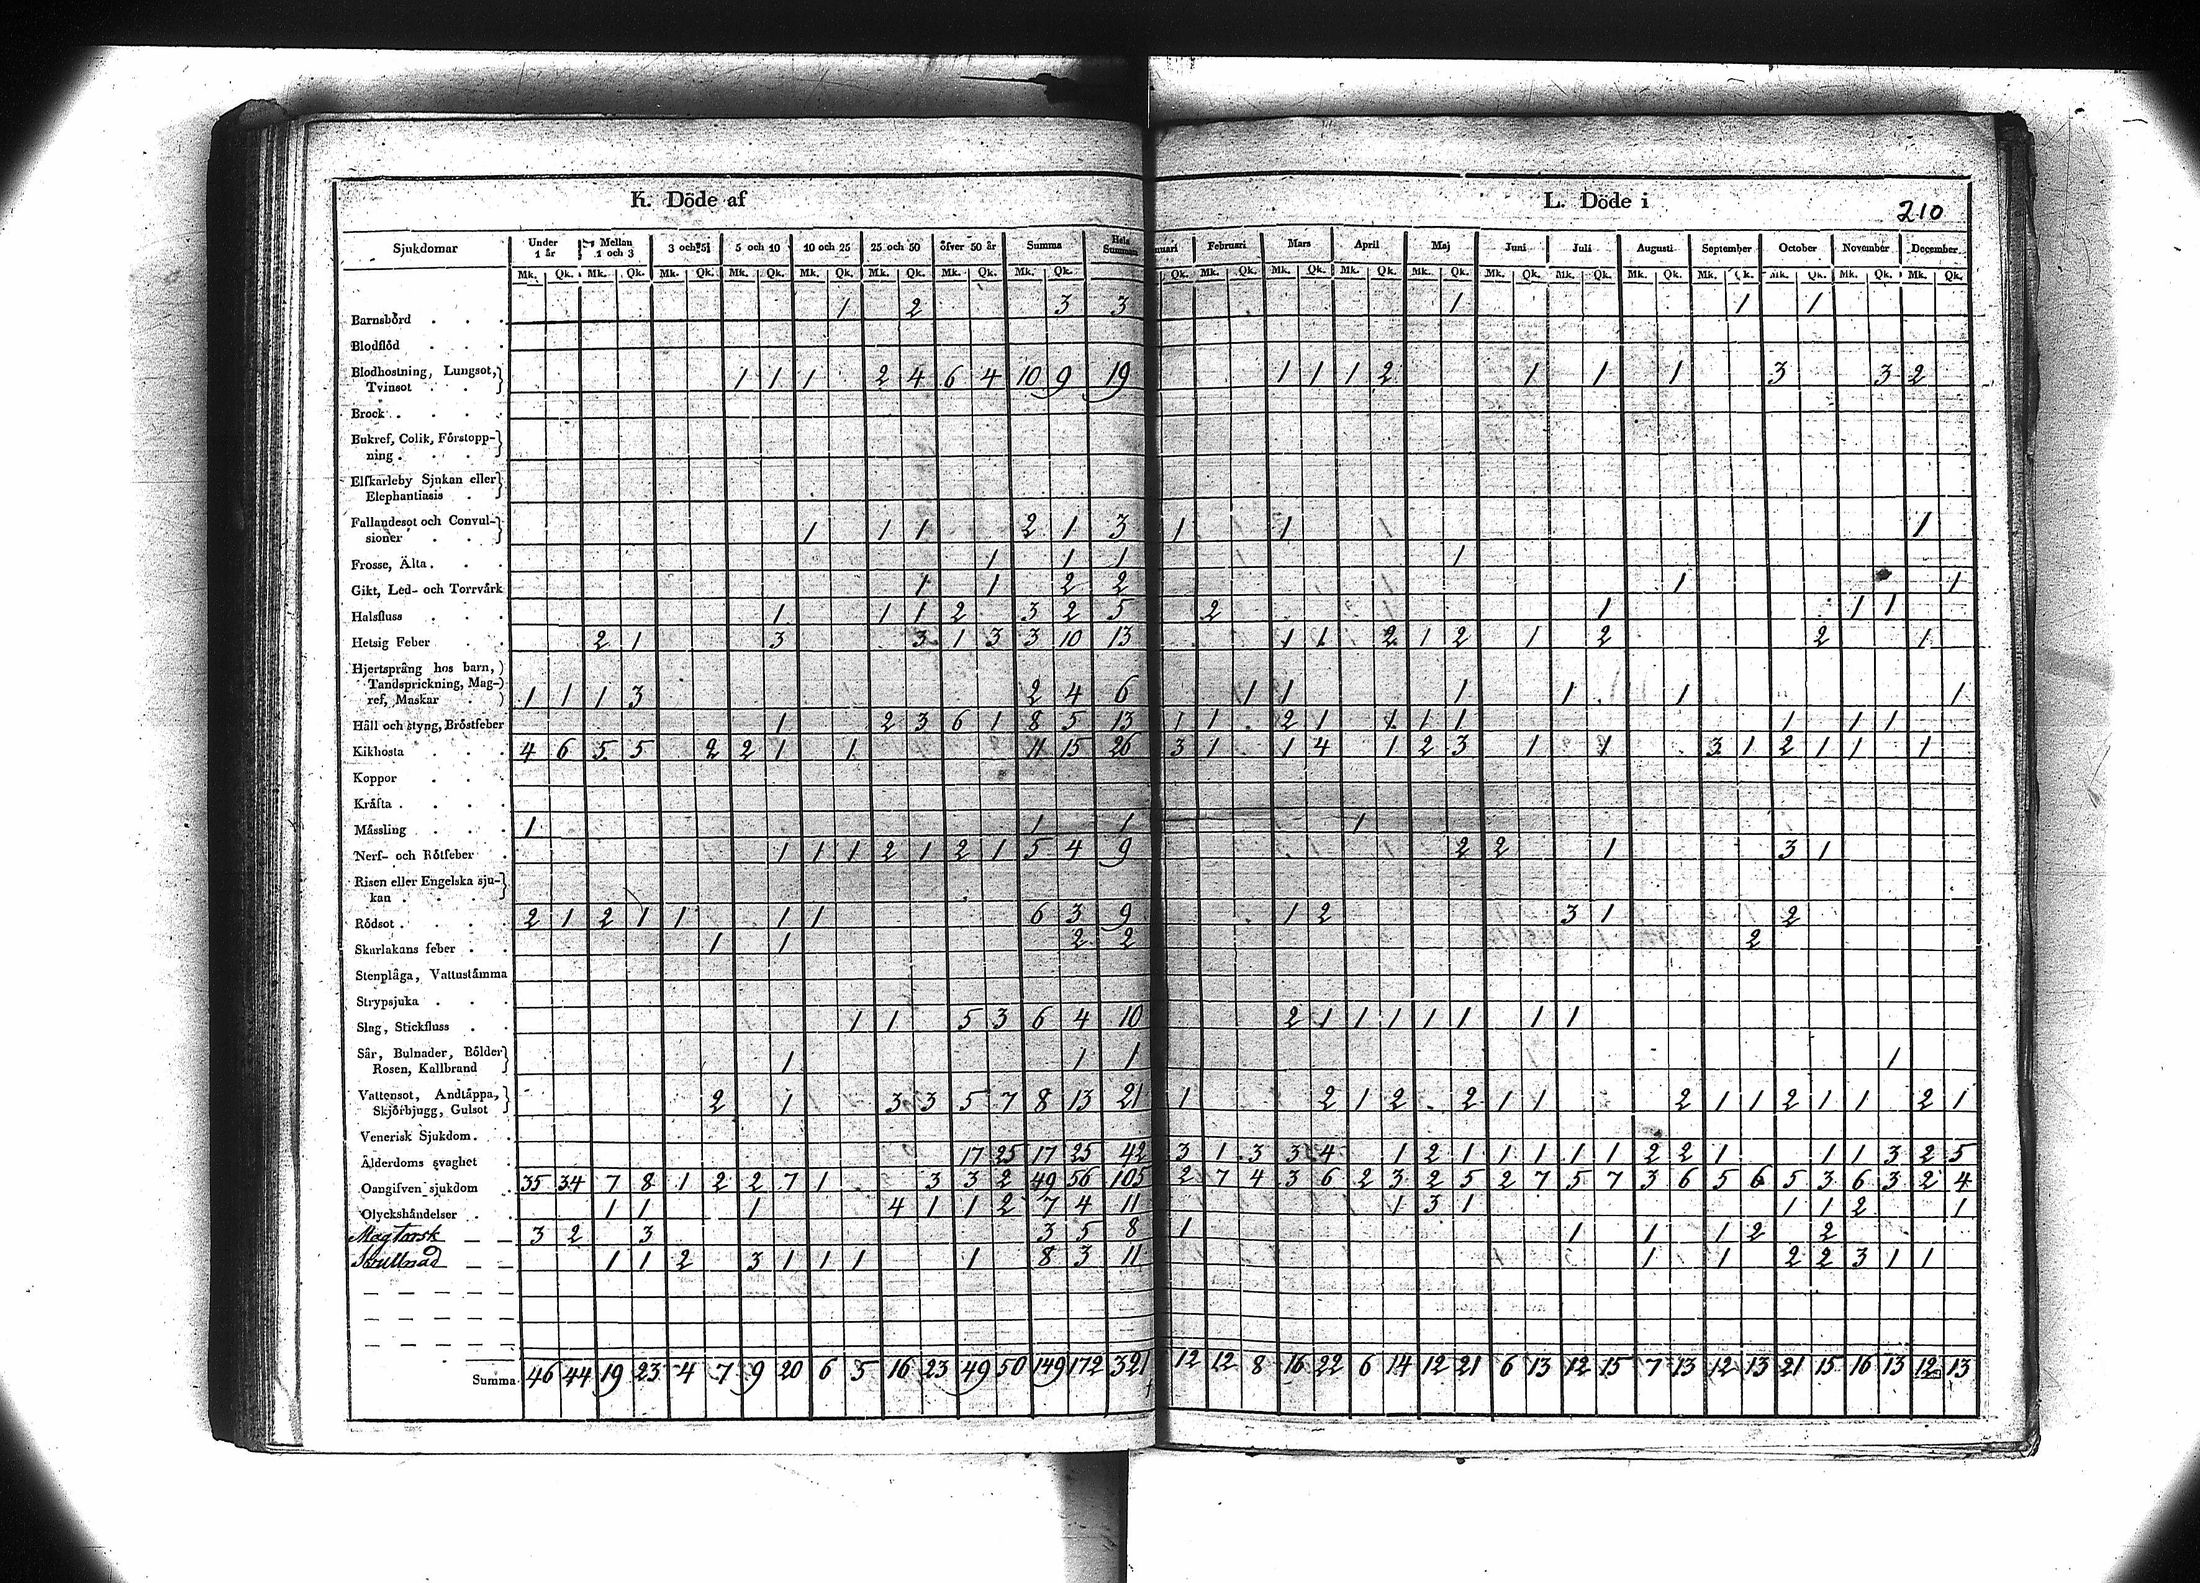 K. Döde af
L. Döde i
210
Sjukdomar Under 1 år Mellan 1 och 3 3 och 5 5 och 10 10 och 25 25 och 50 öfver 50 år Summa Hela Summan
uari Februari Mars April Maj Juni Juli Augusti September October November December
Mk. Qk. Mk. Qk. Mk. Qk. Mk. Qk. Mk. Qk. Mk. Qk. Mk. Qk. Mk. Qk.
Qk. Mk. Qk. Mk. Qk. Mk. Qk. Mk. Qk. Mk. Qk. Mk. Qk. Mk. Qk. Mk. Qk. Mk. Qk. Mk. Qk. Mk. Qk.
Barnsbörd 1 2 3 3 1 1 1
Blodflöd
Blodhostning, Lungsot,
Tvinsot 1 1 1 2 4 6 4 10 9 19 1 1 1 2 1 1 1 3 3 2
Brock
Bukref, Colik, Förstopp-
ning
Elfkarleby Sjukan eller
Elephantiasis
Fallandesot och Convul-
sioner 1 1 1 2 1 3 1 1 1
Frosse, Älta 1 1 1 1
Gikt, Led- och Torrvärk 1 1 2 2 1 1
Halsfluss 1 1 1 2 3 2 5 2 1 1 1
Hetsig Feber 2 1 3 3 1 3 3 10 13 1 1 2 1 2 1 2 2 1
Hjertsprång hos barn,
Tandsprickning, Mag-
ref, Maskar 1 1 1 3 2 4 6 1 1 1 1 1 1
Håll och styng, Bröstfeber 1 2 3 6 1 8 5 13 1 1 2 1 1 1 1 1 1 1
Kikhosta 4 6 5 5 2 2 1 1 11 15 26 3 1 1 4 1 2 3 1 1 3 1 2 1 1 1
Koppor
Kräfta
Mässling 1 1 1 1
Nerf- och Rötfeber 1 1 1 2 1 2 1 5 4 9 2 2 1 3 1
Risen eller Engelska sju-
kan
Rödsot 2 1 2 1 1 1 1 6 3 9 1 2 3 1 2
Skarlakans feber 1 1 2 2 2
Stenplåga, Vattustämma
Strypsjuka
Slag, Stickfluss 1 1 5 3 6 4 10 2 1 1 1 1 1 1 1
Sår, Bulnader, Bölder
Rosen, Kallbrand 1 1 1 1
Vattensot, Andtäppa,
Skjörbjugg, Gulsot 2 1 3 3 5 7 8 13 21 1 2 1 2 2 1 1 2 1 1 2 1 1 2 1
Venerisk Sjukdom
Ålderdoms svaghet 17 25 17 25 42 3 1 3 3 4 1 2 1 1 1 1 1 2 2 1 1 1 3 2 5
Oangifven sjukdom 35 34 7 8 1 2 2 7 1 3 3 2 49 56 105 2 7 4 3 6 2 3 2 5 2 7 5 7 3 6 5 6 5 3 6 3 2 4
Olyckshändelser 1 1 1 4 1 1 2 7 4 11 1 3 1 1 1 2 1
Magtorsk 3 2 3 3 5 8 1 1 1 1 2 2
Skrullnad 1 1 2 3 1 1 1 1 8 3 11 1 1 2 2 3 1 1
Summa 46 44 19 23 4 7 9 20 6 5 16 23 49 50 149 172 321 12 12 8 16 22 6 14 12 21 6 13 12 15 7 13 12 13 21 15 16 13 12 13